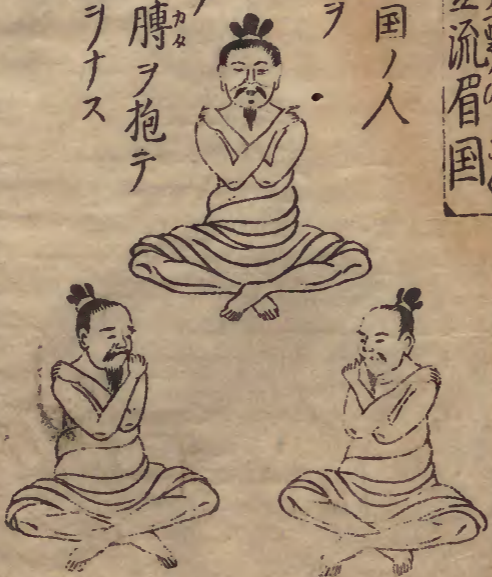 流眉国
国ノ人
ヲ
膊ヲ抱テ
カタ
ヲナス